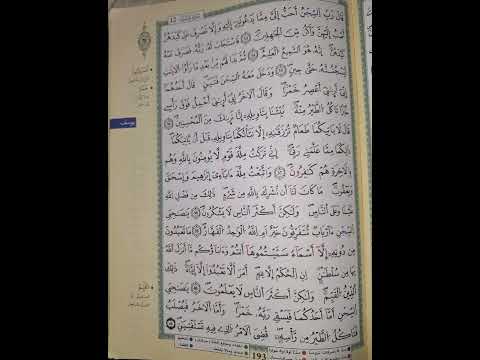 قَالَ رَبِّ اِ۬لسِّجْنُ أَحَبُّ إِلَيَّ مِمَّا يَدْعُونَنِے إِلَيْهِ وَإِلَّا تَصْرِفْ عَنِّے كَيْدَهُنَّ
أَصْبُ إِلَيْهِنَّ وَأَكُن مِّنَ اَ۬لْجَٰهِلِينَ فَاسْتَجَابَ لَهُۥ رَبُّهُۥ فَصَرَفَ عَنْهُ
كَيْدَهُنَّ إِنَّهُۥ هُوَ اَ۬لسَّمِيعُ اُ۬لْعَلِيمُ ثُمَّ بَدَا لَهُم مِّنۢ بَعْدِ مَا رَأَوُاْ اُ۬لَايَٰتِ
لَيَسْجُنُنَّهُۥ حَتَّىٰ حِينٍ وَدَخَلَ مَعَهُ اُ۬لسِّجْنَ فَتَيَٰنِ قَالَ أَحَدُهُمَا
إِنِّيَ أَرَىٰنِيَ أَعْصِرُ خَمْرًا وَقَالَ اَ۬لَاخَرُ إِنِّيَ أَرَىٰنِيَ أَحْمِلُ فَوْقَ رَأْسِے
خُبْزًا تَاكُلُ اُ۬لطَّيْرُ مِنْهُ نَبِّئْنَا بِتَاوِيلِهِۦٓ إِنَّا نَر۪ىٰكَ مِنَ اَ۬لْمُحْسِنِينَ
قَالَ لَا يَاتِيكُمَا طَعَامٌ تُرْزَقَٰنِهِۦٓ إِلَّا نَبَّأْتُكُمَا بِتَاوِيلِهِۦ قَبْلَ أَنْ يَّاتِيَكُمَا
ذَٰلِكُمَا مِمَّا عَلَّمَنِے رَبِّيَ إِنِّے تَرَكْتُ مِلَّةَ قَوْمٍ لَّا يُومِنُونَ بِاللَّهِ وَهُم
بِالَاخِرَةِ هُمْ كَٰفِرُونَ وَاتَّبَعْتُ مِلَّةَ ءَابَآءِيَ إِبْرَٰهِيمَ وَإِسْحَٰقَ
وَيَعْقُوبَ مَا كَانَ لَنَآ أَن نُّشْرِكَ بِاللَّهِ مِن شَيْءٍ ذَٰلِكَ مِن فَضْلِ اِ۬للَّهِ
عَلَيْنَا وَعَلَى اَ۬لنَّاسِ وَلَٰكِنَّ أَكْثَرَ اَ۬لنَّاسِ لَا يَشْكُرُونَ يَٰصَٰحِبَيِ
اِ۬لسِّجْنِ ءَآرْبَابٌ مُّتَفَرِّقُونَ خَيْرٌ اَمِ اِ۬للَّهُ اُ۬لْوَٰحِدُ اُ۬لْقَهَّارُ مَا تَعْبُدُونَ
مِن دُونِهِۦٓ إِلَّآ أَسْمَآءً سَمَّيْتُمُوهَآ أَنتُمْ وَءَابَآؤُكُم مَّآ أَنزَلَ اَ۬للَّهُ
بِهَا مِن سُلْطَٰنٍ اِنِ اِ۬لْحُكْمُ إِلَّا لِلهِ أَمَرَ أَلَّا تَعْبُدُوٓاْ إِلَّآ إِيَّاهُ ذَٰلِكَ
اَ۬لدِّينُ اُ۬لْقَيِّمُ وَلَٰكِنَّ أَكْثَرَ اَ۬لنَّاسِ لَا يَعْلَمُونَ يَٰصَٰحِبَيِ
اِ۬لسِّجْنِ أَمَّآ أَحَدُكُمَا فَيَسْقِے رَبَّهُۥ خَمْرًا وَأَمَّا اَ۬لَاخَرُ فَيُصْلَبُ
فَتَاكُلُ اُ۬لطَّيْرُ مِن رَّأْسِهِۦ قُضِيَ اَ۬لَامْرُ اُ۬لذِے فِيهِ تَسْتَفْتِيَٰنِ